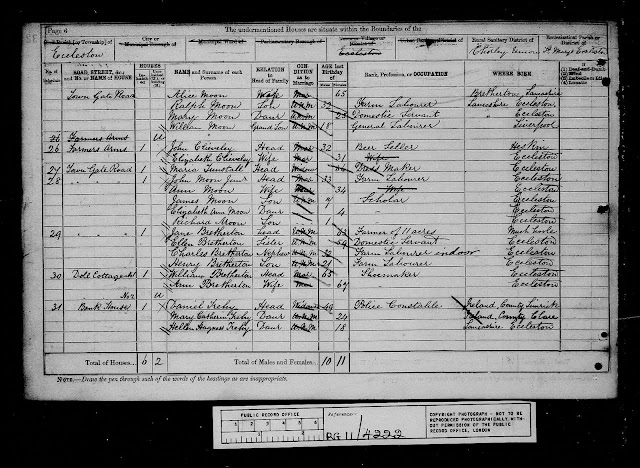 Page 6
The undermentioned Houses are situate within the Boundaries of the
Civil Parish [or Township] of
City or Municipal Borough of
Municipal Ward of
Parliamentary Borough of
Town or Village or Hamlet of
Urban Sanitary District of
Rural Sanitary District of
Ecclesiastical Parish or District of
Eccleston
Eccleston
Chorley Union
St Marys Eccleston
No. of Schedule ROAD, STREET, &c., and No. or NAME of HOUSE HOUSES NAME and Surname of each Person RELATION to Head of Family CONDITION as to Marriage AGE last Birthday of Rank, Profession, or OCCUPATION WHERE BORN
Town Gate Road Alice Moon Wife Mar 65 Bretherton Lancashire
Ralph Moon Son Unm 32 Farm Labourer Lancashire Eccleston
Mary Moon Daur Unm 23 Domestic Servant " Eccleston
William Moon Grand Son Unm 18 General Labourer " Liverpool
26 Farmers Arms U
26 Farmers Arms 1 John Cliveley Head Mar 32 Beer Seller
Elizabeth Cliveley Wife Mar 31 Wife Eccleston
27 Town Gate Road 1 Maria Tunstall Head Widow Maker Eccleston
28 " 1 John Moon Junr Head Mar 33 Farm Labourer Eccleston
Ann Moon Wife Mar 34 Wife Eccleston
James Moon Son 7 Scholar Eccleston
Elizabeth Ann Moon Daur 4 Eccleston
Richard Moon Son 1 Eccleston
29 " 1 Jane Bretherton Head Unm 63 Farmer of 11 acres Much Hoole
Ellen Bretherton Sister Unm 54 Domestic Servant Eccleston
Charles Bretherton Nephew Unm 32 Farm Labourer indoor Eccleston
Henry Bretherton Son Unm 21 Farm Labourer Eccleston
30 Dole Cottage 1 William Bretherton Head Mar 65 Shoemaker Eccleston
Ann Bretherton Wife Mar 67 Eccleston
U
31 Bank House 1 Daniel Head Widower 49 Police Constable Ireland, County Limerick
Mary Catherin Daur Unm 24 Ireland, County Clare
Hellen Daur Unm 18 Lancashire Eccleston
Total of Houses 6 2 Total of Males and Females 10 11
NOTE.—Draw the pen through such of the words of the headings as are inappropriate.
PUBLIC RECORD OFFICE
Reference:-
RG 11/4222
COPYRIGHT PHOTOGRAPH - NOT TO BE
REPRODUCED PHOTOGRAPHICALLY WITH-
OUT PERMISSION OF THE PUBLIC
RECORD OFFICE, LONDON